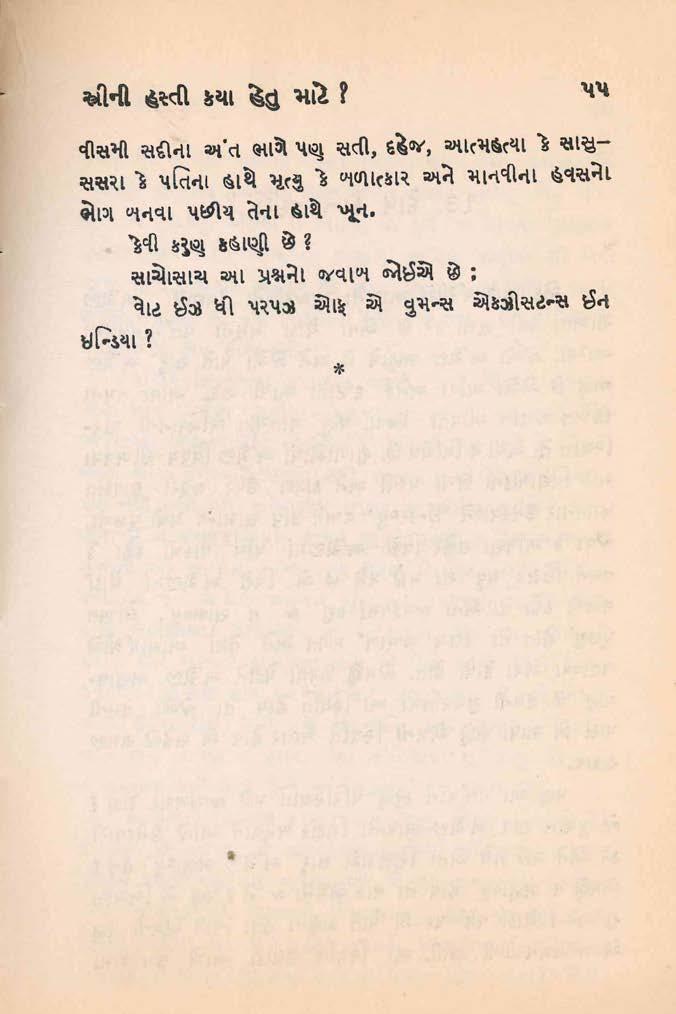 સ્ત્રીની હસ્તી કયા હેતુ માટે ? ૫૫
વીસમી સદીના અંત ભાગે પણ સતી, દહેજ, આત્મહત્યા કે સાસુ–
સસરા કે પતિના હાથે મૃત્યુ કે બળાત્કાર અને માનવીના હવસનો
ભોગ બનવા પછીય તેના હાથે ખૂન.
કેવી કરુણ કહાણી છે ?
સાચોસાચ આ પ્રશ્નનો જવાબ જોઈએ છે :
વોટ ઈઝ ધી પરપઝ ઓફ એ વુમન્સ એકઝીસટન્સ ઈન
ઇન્ડિયા ?
*